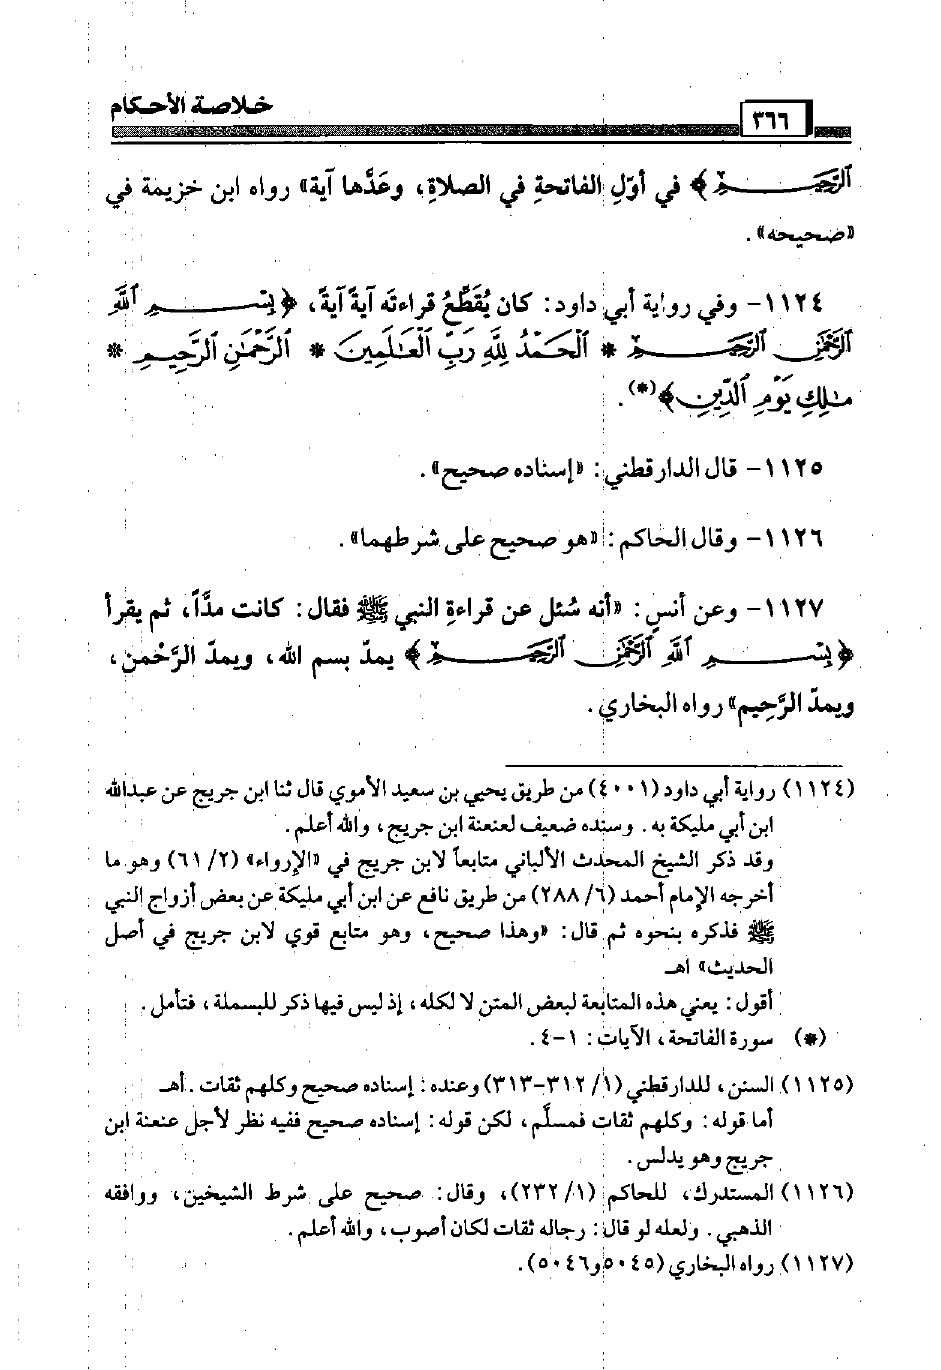 خلاصة الأحكام
٣٦٦
ٱلرَّحِيمِ﴾ في أوّلِ الفاتحةِ في الصلاةِ، وعَدَّها آية» رواه ابن خزيمة في
«صحيحه».
١١٢٤- وفي رواية أبي داود: كان يُقَطِّعُ قراءتَه آيةً آيةً، ﴿بِسْمِ ٱللَّهِ
ٱلرَّحْمَٰنِ ٱلرَّحِيمِ * ٱلْحَمْدُ لِلَّهِ رَبِّ ٱلْعَٰلَمِينَ * ٱلرَّحْمَٰنِ ٱلرَّحِيمِ *
مَٰلِكِ يَوْمِ ٱلدِّينِ﴾(*).
١١٢٥- قال الدارقطني: «إسناده صحيح».
١١٢٦- وقال الحاكم: «هو صحيح على شرطهما».
١١٢٧- وعن أنسٍ: «أنه سُئل عن قراءةِ النبي ﷺ فقال: كانت مدَّاً، ثم يقرأ
﴿بِسْمِ ٱللَّهِ ٱلرَّحْمَٰنِ ٱلرَّحِيمِ﴾ يمدّ بسم الله، ويمدّ الرَّحْمن،
ويمدّ الرَّحِيم» رواه البخاري.
(١١٢٤) رواية أبي داود (٤٠٠١) من طريق يحيى بن سعيد الأموي قال ثنا ابن جريج عن عبدالله
ابن أبي مليكة به. وسنده ضعيف لعنعنة ابن جريج، والله أعلم.
وقد ذكر الشيخ المحدث الألباني متابعاً لابن جريج في «الإرواء» (٢/ ٦١) وهو ما
أخرجه الإمام أحمد (٦/ ٢٨٨) من طريق نافع عن ابن أبي مليكة عن بعض أزواج النبي
ﷺ فذكره بنحوه ثم قال: «وهذا صحيح، وهو متابع قوي لابن جريج في أصل
الحديث» اهـ
أقول: يعني هذه المتابعة لبعض المتن لا لكله، إذ ليس فيها ذكر للبسملة، فتأمل.
(*) سورة الفاتحة، الآيات: ١-٤.
(١١٢٥) السنن، للدارقطني (١/ ٣١٢-٣١٣) وعنده: إسناده صحيح وكلهم ثقات. أهـ
أما قوله: وكلهم ثقات فمسلّم، لكن قوله: إسناده صحيح ففيه نظر لأجل عنعنة ابن
جريج وهو يدلس.
(١١٢٦) المستدرك، للحاكم (١/ ٢٣٢)، وقال: صحيح على شرط الشيخين، ووافقه
الذهبي. ولعله لو قال: رجاله ثقات لكان أصوب، والله أعلم.
(١١٢٧) رواه البخاري (٥٠٤٥ و٥٠٤٦).